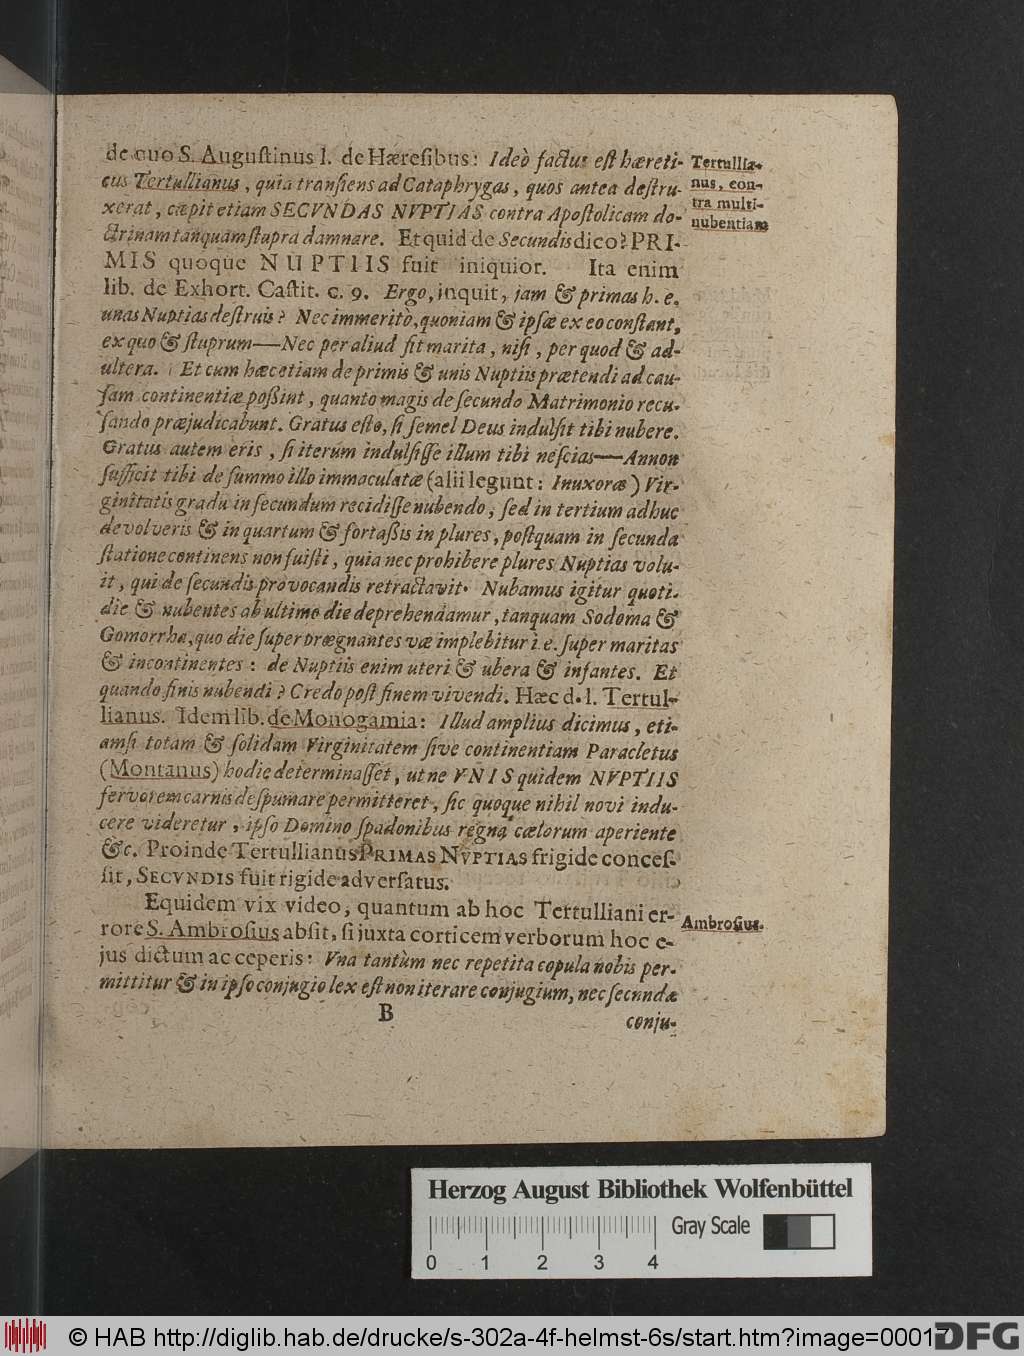 de quo S. Auguſtinus l. de Hæreſibus: Ideò factus eſt hæreti-
cus Tertullianus, quia tranſiens ad Cataphrygas, quos antea deſtru-
xerat, cæpit etiam SECVNDAS NVPTIAS contra Apoſtolicam do-
ctrinam tanquam ſtupra damnare. Et quid de Secundis dico? PRI-
MIS quoque NUPTIIS fuit iniquior. Ita enim
lib. de Exhort. Caſtit. c. 9. Ergo, inquit, jam & primas h. e.
unas Nuptias deſtruis? Nec immeritò, quoniam & ipſæ ex eo conſtant,
ex quo & ſtuprum—Nec per aliud fit marita, niſi, per quod & ad-
ultera. Et cum hæc etiam de primis & unis Nuptiis prætendi ad cau-
ſam continentiæ poßint, quanto magis de ſecundo Matrimonio recu-
ſando præjudicabunt. Gratus eſto, ſi ſemel Deus indulſit tibi nubere.
Gratus autem eris, ſi iterum indulſiſſe illum tibi neſcias—Annon
ſufficit tibi de ſummo illo immaculatæ (alii legunt: Inuxoræ) Vir-
ginitatis gradu in ſecundum recidiſſe nubendo, ſed in tertium adhuc
devolveris & in quartum & fortaßis in plures, poſtquam in ſecunda
ſtatione continens non fuiſti, quia nec prohibere plures Nuptias volu-
it, qui de ſecundis provocandis retractavit. Nubamus igitur quoti-
die & nubentes ab ultimo die deprehendamur, tanquam Sodoma &
Gomorrha, quo die ſuper prægnantes væ implebitur i. e. ſuper maritas
& incontinentes: de Nuptiis enim uteri & ubera & infantes. Et
quando finis nubendi? Credo poſt finem vivendi. Hæc d. l. Tertul-
lianus. Idem lib. de Monogamia: Illud amplius dicimus, eti-
amſi totam & ſolidam Virginitatem ſive continentiam Paracletus
(Montanus) hodie determinaſſet, ut ne VNIS quidem NVPTIIS
fervorem carnis deſpumare permitteret, ſic quoque nihil novi indu-
cere videretur, ipſo Domino ſpadonibus regna cælorum aperiente
&c. Proinde Tertullianus PRIMAS NVPTIAS frigide conceſ-
ſit, SECVNDIS fuit rigide adverſatus.
Equidem vix video, quantum ab hoc Tertulliani er-
rore S. Ambroſius abſit, ſi juxta corticem verborum hoc e-
jus dictum acceperis: Vna tantùm nec repetita copula nobis per-
mittitur & in ipſo conjugio lex eſt non iterare conjugium, nec ſecundæ
B
conju-
Tertullia-
nus, con-
tra multi-
nubentiam
Ambroſius.
Herzog August Bibliothek Wolfenbüttel
Gray Scale
0 1 2 3 4
© HAB http://diglib.hab.de/drucke/s-302a-4f-helmst-6s/start.htm?image=00017
DFG